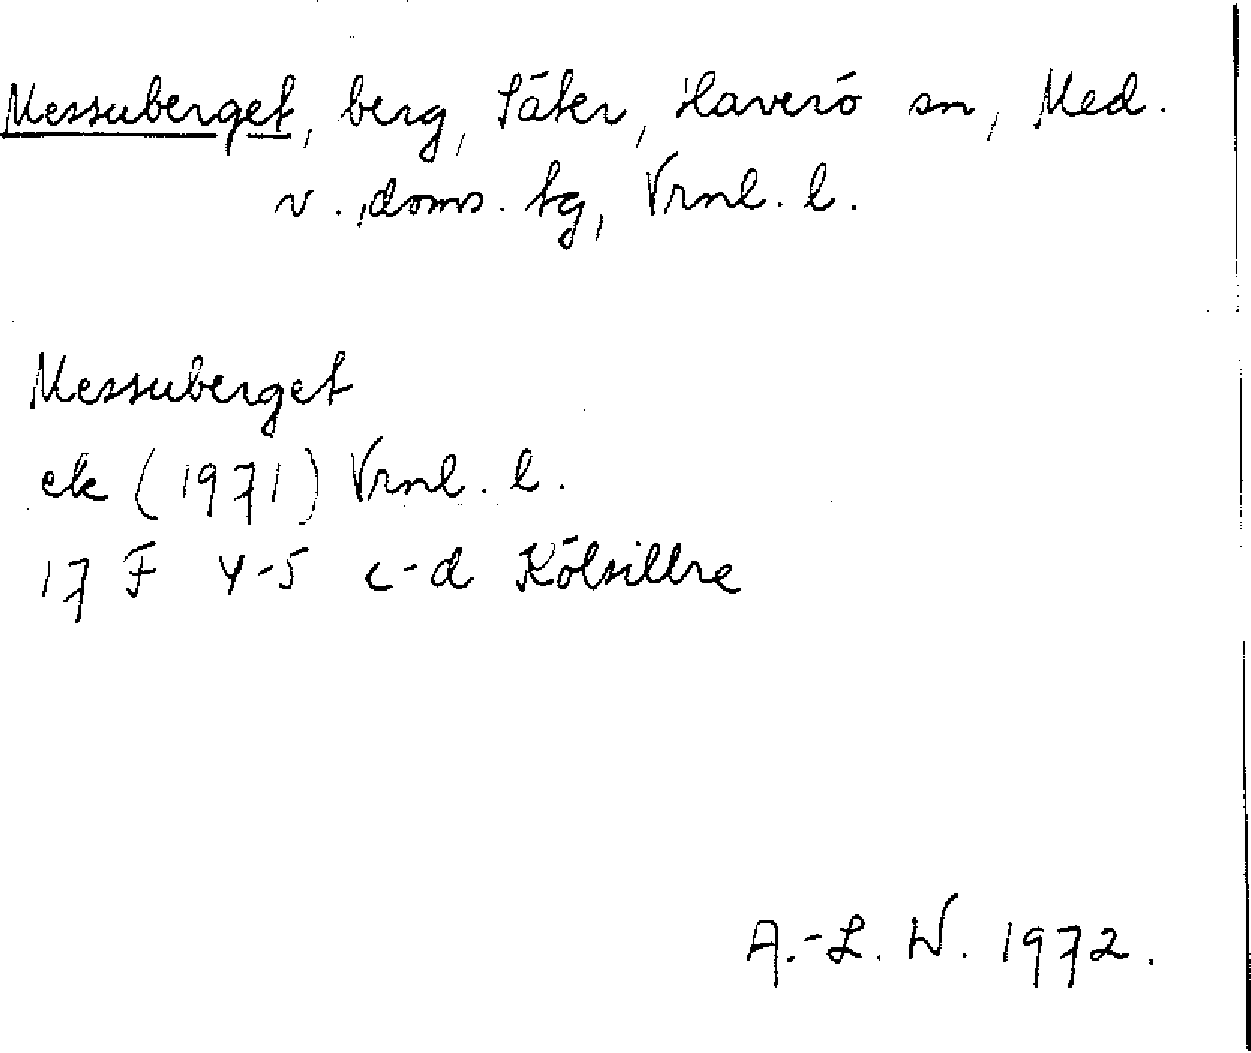 Messuberget, berg, Säter, Haverö sn, Med.
v. doms. tg, Vrnl. l.
Messuberget
ek (1971) Vrnl. l.
17 F 4-5 c-d Kölsillre
A.-L. W. 1972.